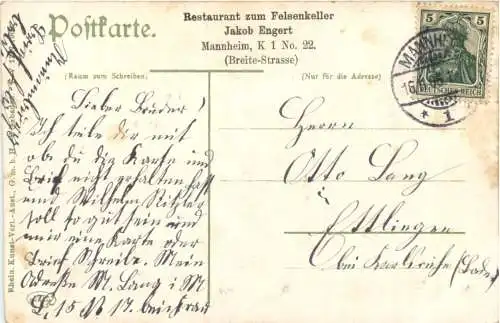 Postkarte.
Restaurant zum Felsenkeller
Jakob Engert
Mannheim, K 1 No. 22.
(Breite-Strasse)
(Raum zum Schreiben)
(Nur für die Adresse)
5 5
DEUTSCHES REICH
MANNH
* 1
Lieber Bruder!
Ich teile dir mit
ob du die Karte und
Brief nicht erhalten hast
und Wilhelm
soll so gut sein und
mir eine Karte oder
Brief Schreibe. Mein
Adresse M. Lang i M
15 17. bei Frau
Herrn
Otto Lang
Ettlingen
bei Karlsruhe (Baden
Rhein. Kunst-Verl.-Anst., G. m. b. H.